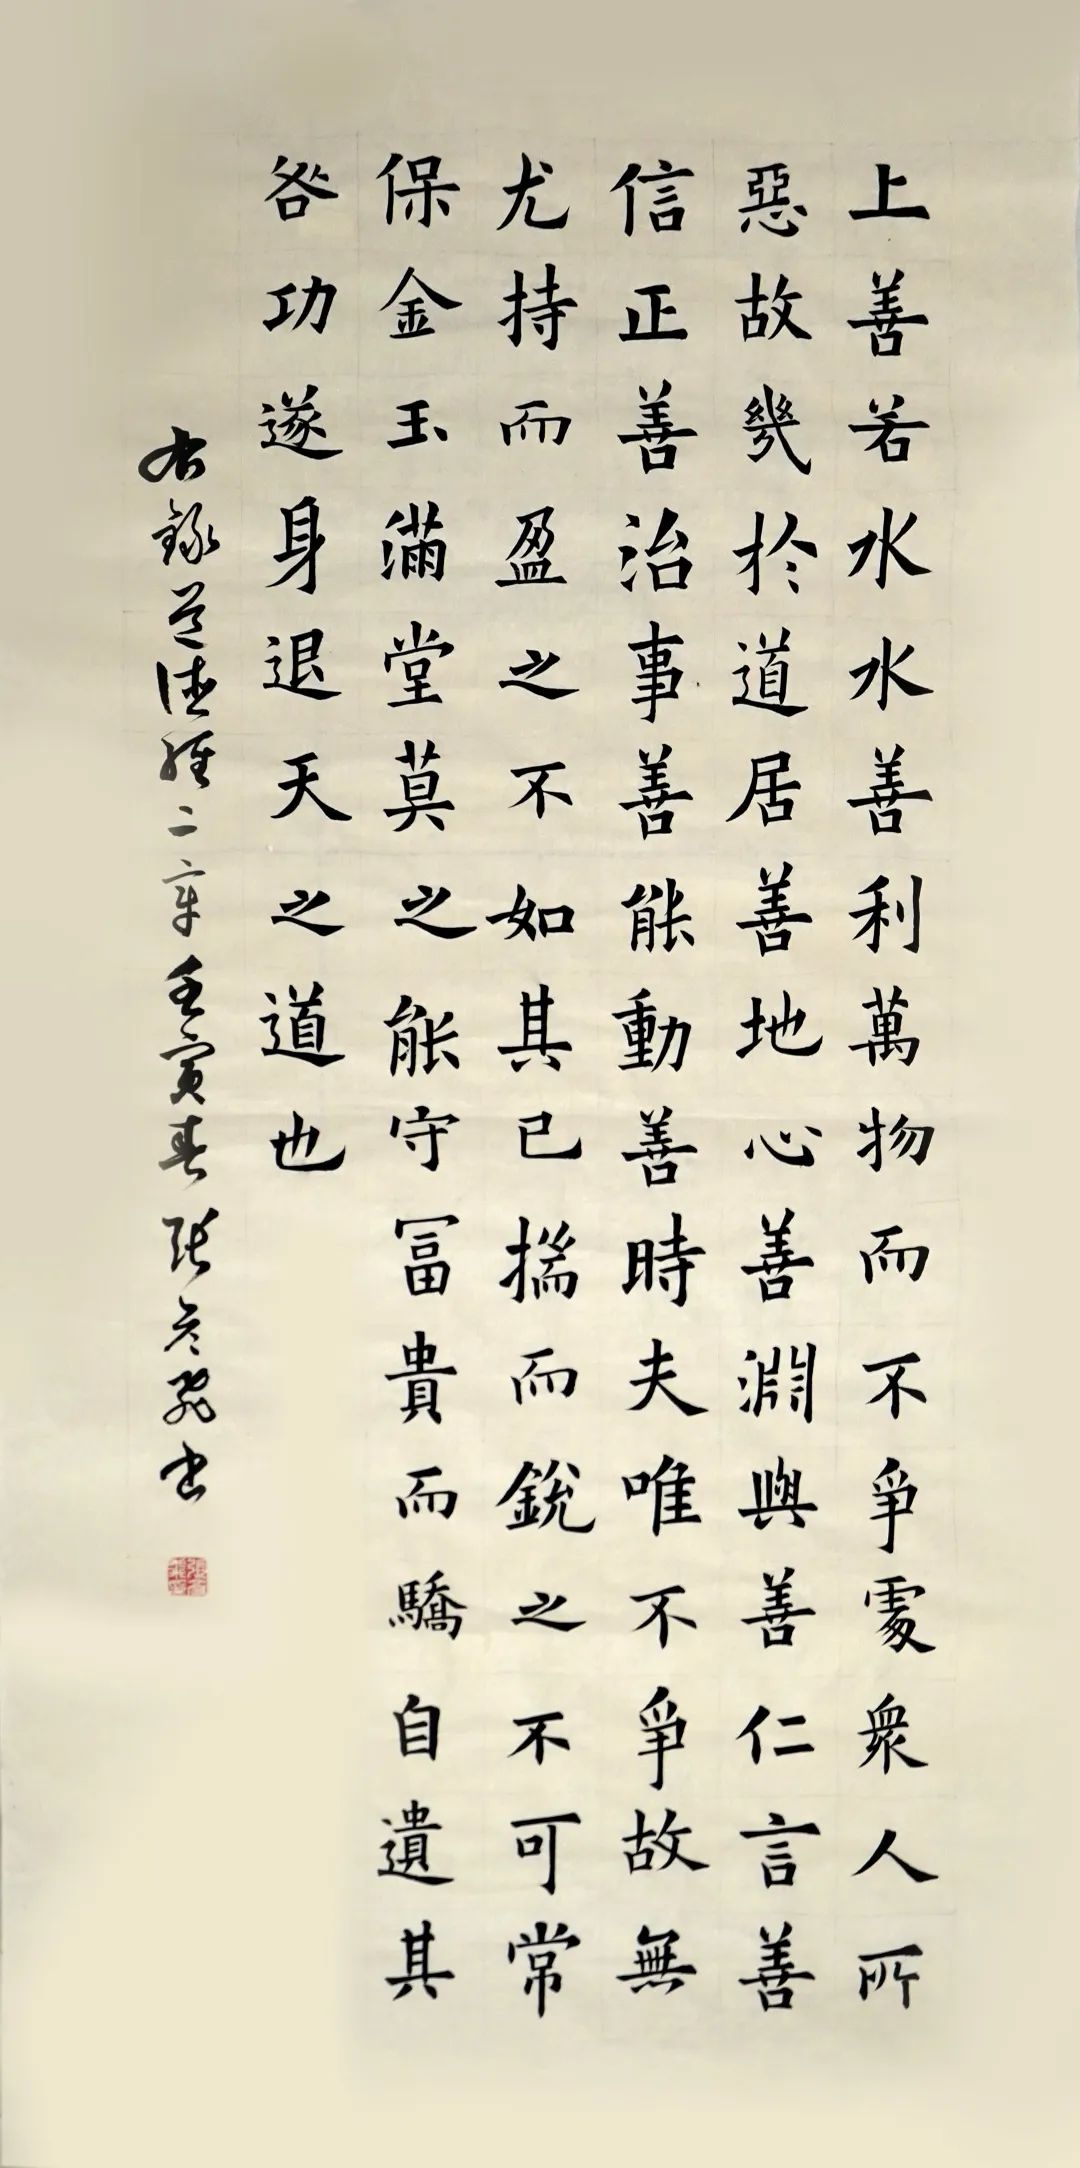 上善若水水善利萬物而不爭處衆人所
惡故幾於道居善地心善淵與善仁言善
信正善治事善能動善時夫唯不爭故無
尤持而盈之不如其已揣而銳之不可常
保金玉滿堂莫之能守冨貴而驕自遺其
咎功遂身退天之道也
右錄道德經二章壬寅春張彥飛書